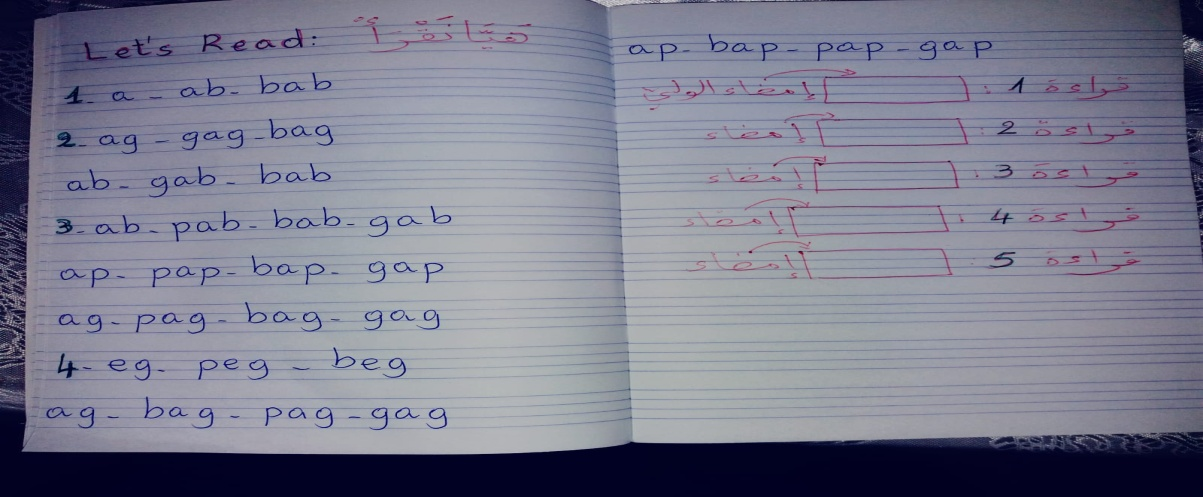 Let's Read: هيّا نَقْرَأُ
1- a - ab- bab
2- ag - gag -bag
ab- gab- bab
3- ab- pab- bab- gab
ap- pap- bap- gap
ag- pag- bag- gag
4- eg- peg - beg
ag- bag- pag-gag
ap- bap- pap-gap
قراءة 1 : إمضاء الولي
قراءة 2 : إمضاء
قراءة 3 : إمضاء
قراءة 4 : إمضاء
قراءة 5 : إمضاء